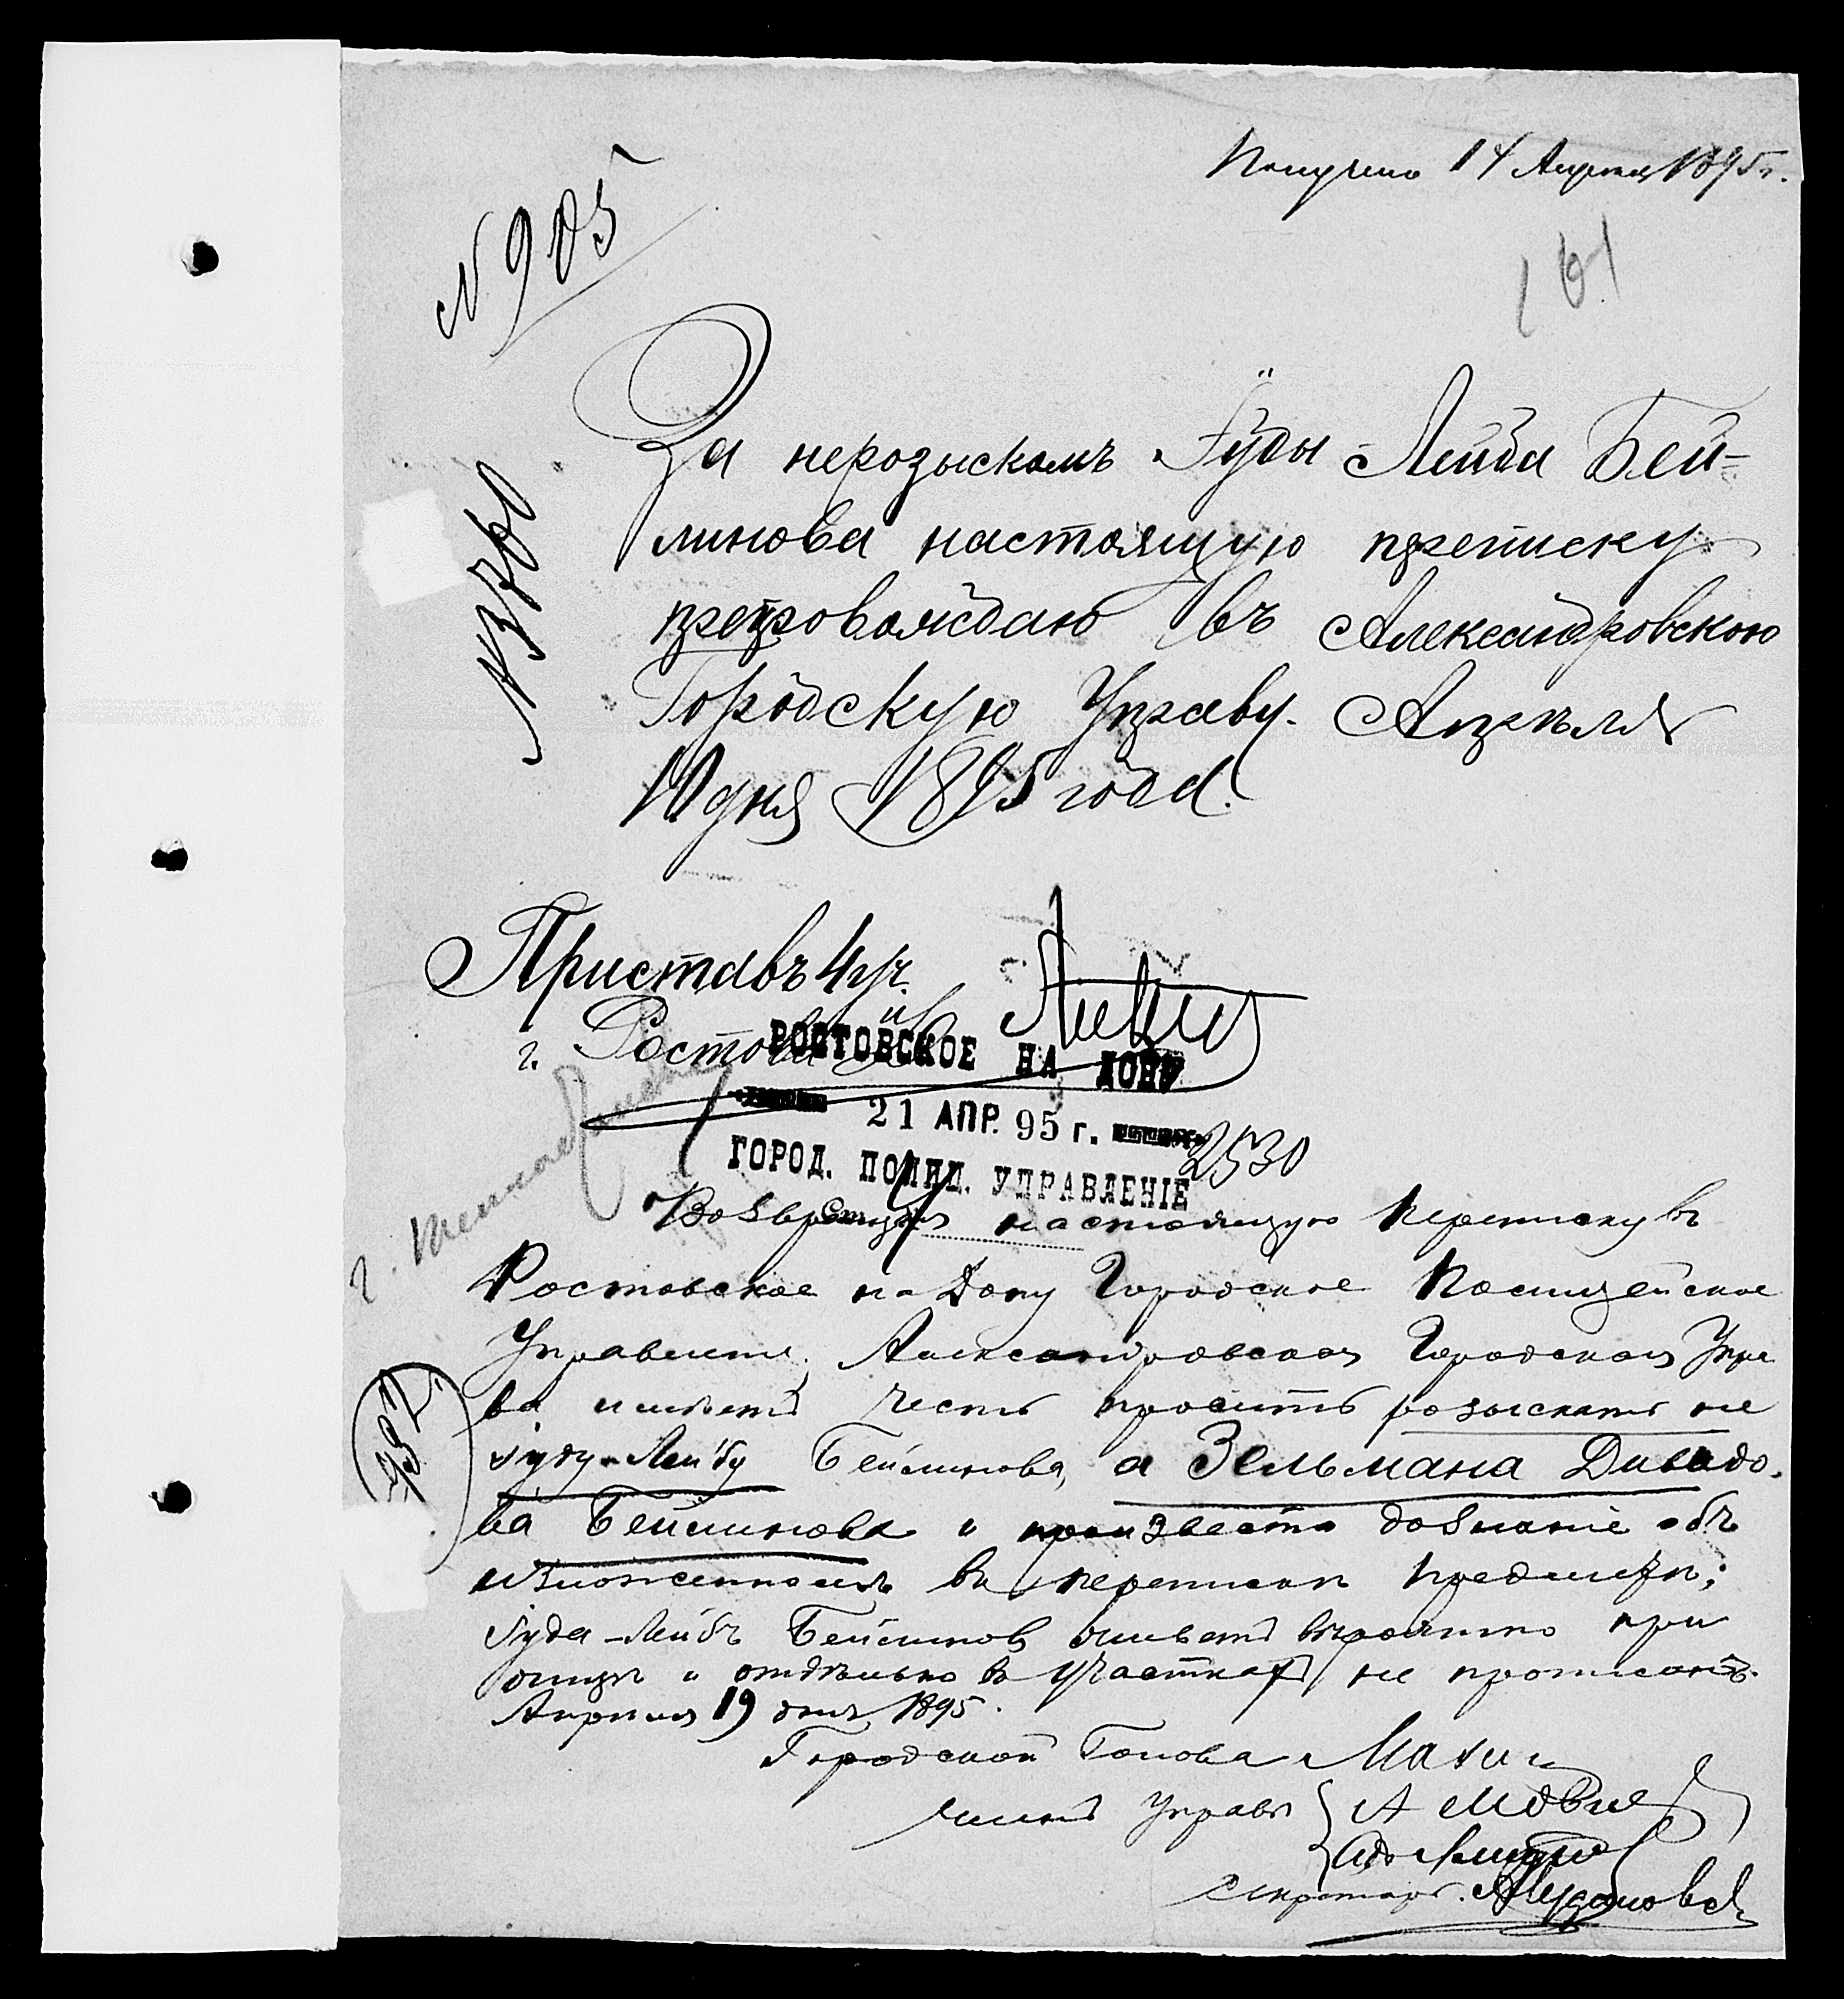 Получено 14 Апреля 1895 г.
161
№ 905
№ 3760
За нерозыскомъ Іуды Лейба Бей-
линова настоящую переписку
препровождаю въ Александровскою
Городскую Управу. Апрѣля
10 дня 1895 года.
Приставъ 4 уч.
г. Ростова н/Д
РОСТОВСКОЕ НА ДОНУ
21 АПР. 95 г.
2530
ГОРОД. ПОЛИЦ. УПРАВЛЕНІЕ
Возвращая настоящую переписку въ
Ростовское на Дону Городское Полицейское
Управленіе, Александровская Городская Упра
ва имѣетъ честь просить розыскать не
Іуду-Лейбу Бейлинова, а Зельмана Давидо-
ва Бейлинова и произвести дознаніе объ
изложенномъ въ перепискѣ предметѣ;
Іуда-Лейбъ Бейлиновъ живетъ вѣроятно при
отцѣ и отдѣльно въ участкахъ не прописанъ.
Апрѣля 19 дня 1895.
Городской Голова
Члены Управы
Секретарь